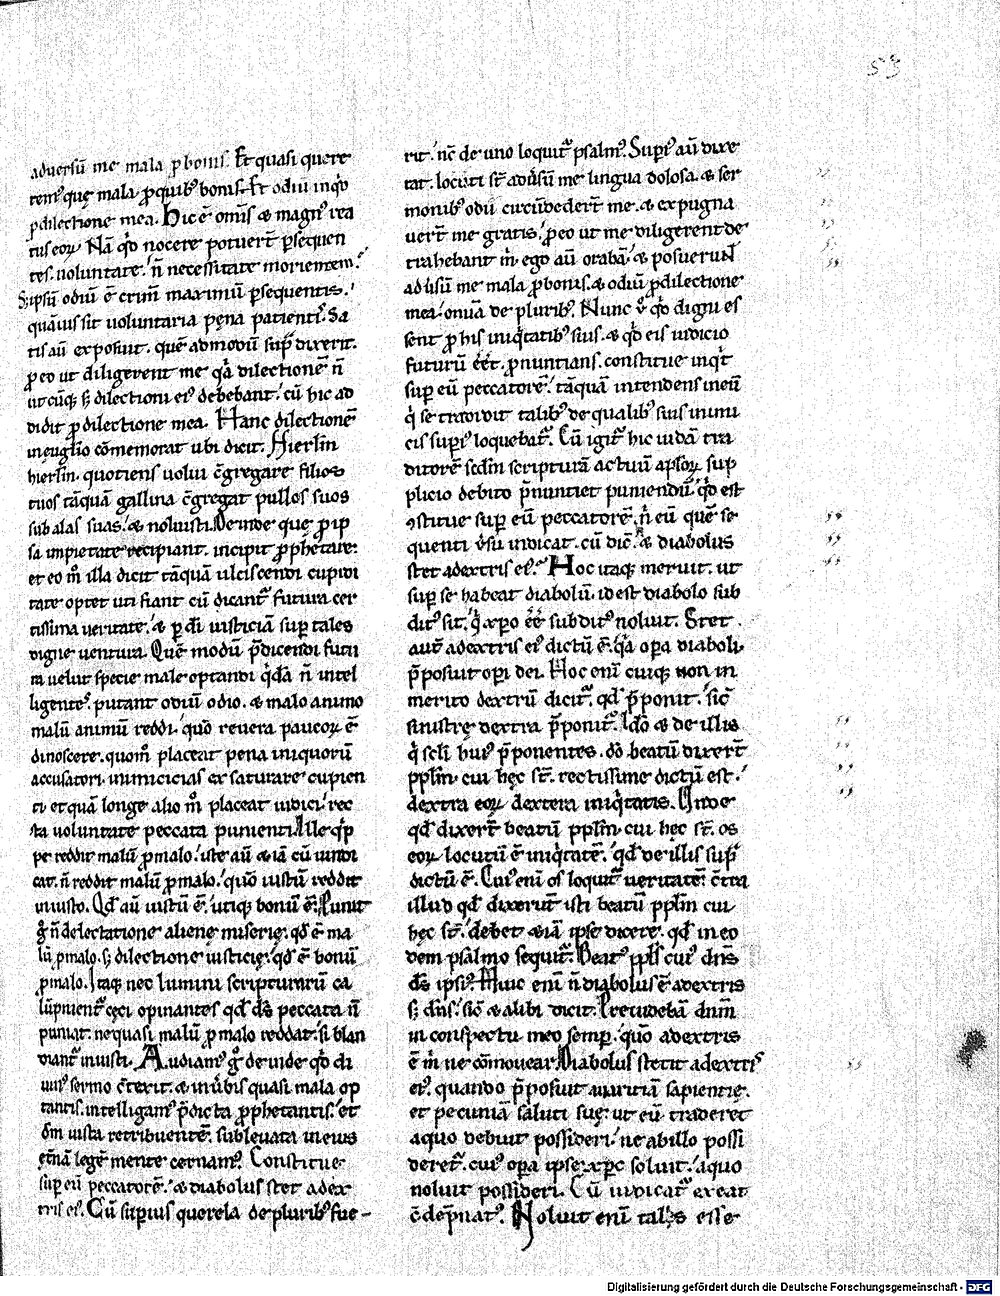 53
adversū me mala ꝓ bonis. Et quasi quere
remꝰ quę mala, ꝓ quibꝰ bonis. Et odiū inqͥo
ꝓ dilectione mea. Hic ē om̄is & magnꝰ rea
tus eoꝝ. Nā qͦd nocere potuer̄t ꝑsequen
tes. uoluntate. n̄ necessitate morientem.
S; ipsū odiū ē crim̄ maximū ꝑsequentis.
quāuis sit uoluntaria pęna patientis. Sa
tis aū exposuit. quē admodū sup̄ dixerit.
ꝓ eo ut diligerent me qͣa dilectionē n̄
utcūq; s; dilectioni eiꝰ debebant. cū hic ad
didit ꝓ dilectione mea. Hanc dilectionē
in euglio cōmemorat ubi dicit. Hierlm̄
hierlm̄. quotiens uolui c̄gregare filios
tuos tāquā gallina c̄gregat pullos suos
sub alas suas. & noluisti. Deinde quę ꝓ ip
sa impietate recipiant. incipit ꝓphetare.
et eo m̊ illa dicit tāquā ulciscendi cupidi
tate optet uti fiant cū dicant᷑ futura cer
tissima ueritate. & ꝑ di iusticiā sup tales
digne uentura. Quē modū p̄dicendi futu
ra uelut specie male optandi qͥdā n̄ intel
ligentes. putant odiū odio. & malo animo
malū animū reddi. quō reuera paucoꝝ ē
dinoscere. quom̊ placeat pena iniquorū
accusatori. inimicicias exsaturare cupien
ti et quā longe alio m̊ placeat iudici. rec
ta uoluntate peccata punienti. Ille qͥp
pe reddit malū ꝓ malo. iste aū &iā cū uindi
cat. n̄ reddit malū ꝓ malo. quō iustū reddit
iniusto. Qd̄ aū iustū ē. utiq; bonū ē. Punit
gͦ n̄ delectatione alienę miserię. qd̄ ē ma
lū ꝓ malo. s; dilectione iusticię. qd̄ ē bonū
ꝓ malo. Itaq; nec lumini scripturarū ca
lūpnient᷑ cęci opinantes qd̄ ds̄ peccata n̄
puniat. ne quasi malū ꝓ malo reddat. si blan
diant᷑ iniusti. Audiamꝰ gͦ deinde qͦd di
uinꝰ sermo c̄texit. & in ūbis quasi mala op
tantis. intelligamꝰ p̄dicta ꝓphetantis. et
dm̄ iusta retribuentē. subleuata in eius
et̄nā legē mente cernamꝰ. Constitue
sup eū peccatorē. & diabolus stet a dex
tris eiꝰ. Cū supius querela de pluribꝰ fue-
rit. nc̄ de uno loquit᷑ psalmꝰ. Supiꝰ aū dixe
rat. locuti st̄ adūsū me lingua dolosa. & ser
monibꝰ odii circūdeder̄t me. & expugna
uer̄t me gratis. ꝓ eo ut me diligerent de
trahebant m̊. ego aū orabā. & posuerunt
adūsū me mala ꝓ bonis. & odiū ꝓ dilectione
mea. omīa de pluribꝰ. Nunc ꝟͦ qͥd digni es
sent ꝓ his iniqͥtatibꝰ suis. & qͥd eis iudicio
futurū eēt. ꝓnuntians. constitue inqͥt
sup eū peccatorē. tāquā intendens in eū
qͥ se tradidit talibꝰ de qualibꝰ suis inimi
cis supiꝰ loquebat᷑. Cū igit᷑ hic iudā tra
ditorē scdm̄ scripturā actuū apl̄oꝝ. sup
plicio debito p̄nuntiet puniendū. qͦd est
ꝯstitue sup eū peccatorē. n̄ eū quē se
quenti ūsu indicat. cū dic̄. & diabolus
stet a dextris eiꝰ. Hoc itaq; meruit. ut
sup se habeat diabolū. id est diabolo sub
ditꝰ sit. qͥ xp̄o eē subditꝰ noluit. Stet
aūt a dextris eiꝰ dictū ē. qͣa opa diaboli.
p̄posuit opi dei. Hoc enī cuiq; non in
merito dextrū dicit᷑. qd̄ p̄ponit. sic̄
sinistrę dextra p̄ponit᷑. Ido & de illis
qͥ scl̄i huiꝰ p̄ponentes. do beatū dixer̄t
ppl̄m. cui hęc st̄. rectissime dictū est.
dextra eoꝝ dextera iniqͥtatis. Inde
qd̄ dixer̄t beatū ppl̄m cui hec st̄. os
eoꝝ locutū ē iniqͥtatē. qd̄ de illis supͥ
dictū ē. Cuiꝰ enī os loquit᷑ ueritatē. c̄tra
illud qd̄ dixerūt isti beatū ppl̄m cui
hęc st̄. debet &iā ipse dicere. qd̄ in eo
dem psalmo sequit᷑. Beatꝰ ppl̄s cuiꝰ dn̄s
ds̄ ipsiꝰ. Huic enī n̄ diabolus ē a dextris
s; dn̄s. sic̄ & alibi dicit. Preuidebā dnm̄
in conspectu meo semp. quō a dextris
ē m̊ ne cōmouear. Diabolus stetit a dextris
eiꝰ. quando p̄posuit auaritiā sapientię.
et pecuniā saluti suę. ut eū traderet
a quo debuit possideri. ne ab illo possi
deret᷑. cuiꝰ opa ipse xp̄c soluit. a quo
noluit possideri. Cū iudicat᷑ exeat
c̄dēpnatꝰ. Noluit enī talis esse
Digitalisierung gefördert durch die Deutsche Forschungsgemeinschaft - DFG